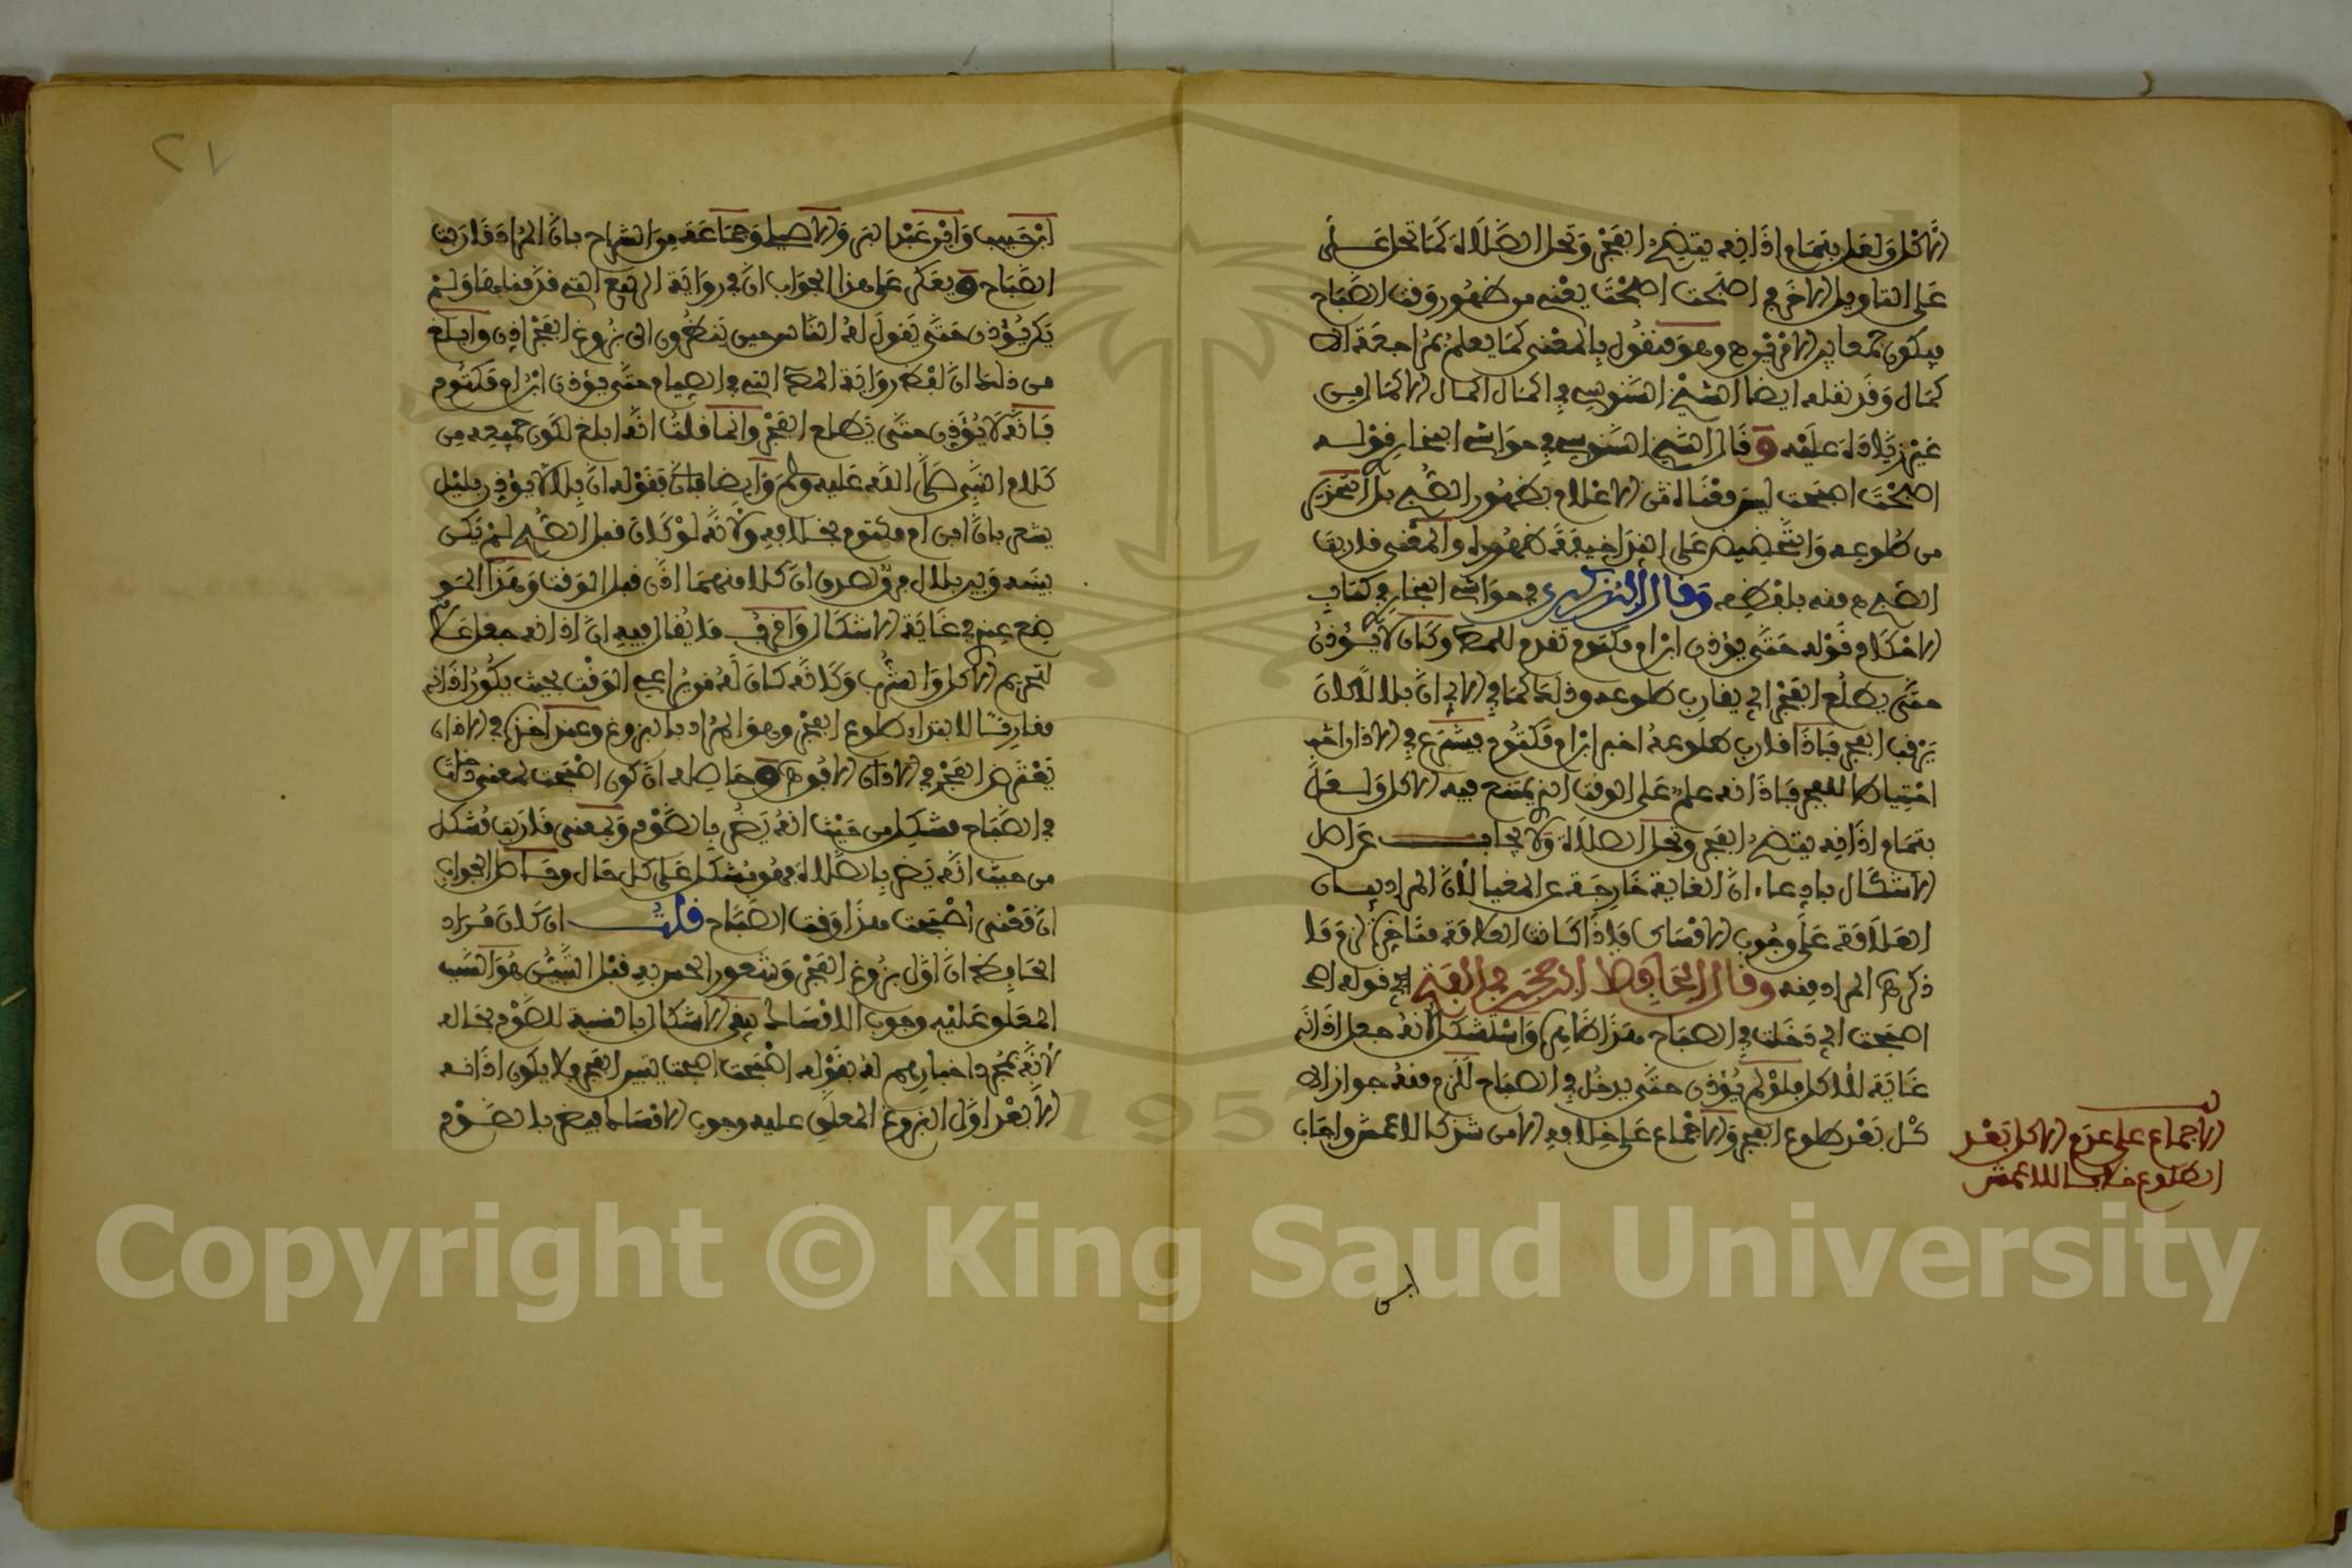 الاكل ولعل بتمام اذانه يتضح الفجر وتحل الصلاة كما تحل على
على التاويل الاخر في اصبحت اصبحت يعني من ظهور وقت الصباح
فيكون جمعا بين الامرين وهو منقول بالمعنى كما يعلم بمراجعة الا
كمال وقد نقله ايضا الشيخ السنوسي في اكمال اكمال الاكمال من
غير زيادة عليه وقال الشيخ السنوسي في حواشي البخاري قوله
اصبحت اصبحت ليس معناه من الاعلام بظهور الصبح بل التحذير
من طلوعه والتحضيض على النداء خيفة ظهوره والمعنى قاربت
الصبح منه بلفظه وقال الزركشي في حواشي البخاري في كتاب
الاحكام قوله حتى يؤذن ابن ام مكتوم تقدم للمص وكان لا يؤذن
حتى يطلع الفجر اي يقارب طلوعه وذلك كما في الابي ان بلالا كان
يرقب الفجر فاذا قارب طلوعه اخبر ابن ام مكتوم فيشرع في الاذان اثر
احتياطا للفجر فاذانه علم على الوقت الذي يمتنع فيه الاكل ولعل
بتمام اذانه يتضح الفجر وتحل الصلاة ولا يجاب عن اصل
الاشكال بادعاء ان الغاية خارجة عن المغيا لان المراد بيان
العلامة على وجوب الامساك فاذا كانت العلامة متاخرة لزم ما
ذكر في المراد منه وقال الحافظ ابن حجر في الفتح في قوله اصبحت
اصبحت اي دخلت في الصباح هذا ظاهره واستشكل لانه جعل اذانه
غاية للاكل فلو لم يؤذن حتى يدخل في الصباح للزم منه جواز الا
كل بعد طلوع الفجر والاجماع على خلافه الا من شذ كالاعمش واجاب
الاجماع على عدم الاكل بعد
الطلوع خلافا للاعمش
ابن
ابن حبيب وابن عبد البر والاصيلي وجماعة من الشراح بان المراد قاربت
الصباح ويعكر على هذا الجواب ان في رواية الربيع التي قدمناها ولم
يكن يؤذن حتى يقول له الناس حين ينظرون الى بزوغ الفجر اذن وابلغ
من ذلك ان لفظ رواية المص التي في الصيام حتى يؤذن ابن ام مكتوم
فانه لا يؤذن حتى يطلع الفجر وانما قلت انه ابلغ لكون جميعه من
كلام النبي صلى الله عليه وسلم وايضا فان قوله ان بلالا يؤذن بليل
يشعر بان ابن ام مكتوم بخلافه ولانه لو كان قبل الصبح لم يكن
بينه وبين بلال فرق لصدق ان كلا منهما اذن قبل الوقت وهذا المو
ضع عندي في غاية الاشكال واقرب ما يقال فيه ان اذانه جعل علامة
لتحريم الاكل والشرب وكانه كان له من يراعي الوقت بحيث يكون اذانه
مقارنا لابتداء طلوع الفجر وهو المراد بالبزوغ وعند اخذه في الاذان
يعترض الفجر في الافق وحاصله ان كون اصبحت بمعنى دخلت
في الصباح مشكل من حيث انه يضر بالصوم وبمعنى قاربت مشكل
من حيث انه يضر بالصلاة فهو مشكل على كل حال وحاصل الجواب
ان معنى اصبحت هذا وقت الصباح قلت ان كان مراد
الحافظ ان اول بزوغ الفجر وشعور المخبر به قبل التبين هو السبب
المعلق عليه وجوب الامساك بقي الاشكال بالنسبة للصوم بحاله
لانه بمجرد اخبارهم له بقولهم اصبحت اصبحت تبين الفجر فلا يكون اذانه
الا بعد اول البزوغ المعلق عليه وجوب الامساك فيضر بالصوم